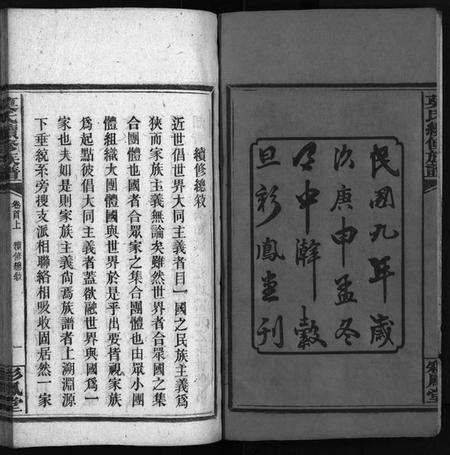 民國九年歲
次庚申孟冬
月中澣穀
旦彩鳳堂刊
彩鳳堂
續修總敘
近世倡世界大同主義者目一國之民族主義爲
狹而家族主義無論矣雖然世界者合眾國之集
合團體也國者合眾家之集合團體也由眾小團
體組織大團體國與世界於是乎出要皆視家族
爲起點彼倡大同主義者蓋欲融世界與國爲一
家也夫如是則家族主義尚焉族譜者上溯淵源
下垂統系旁搜支派相聯絡相吸收固居然一家
氏續修族譜
卷首上
續修總敘
一
彩鳳堂